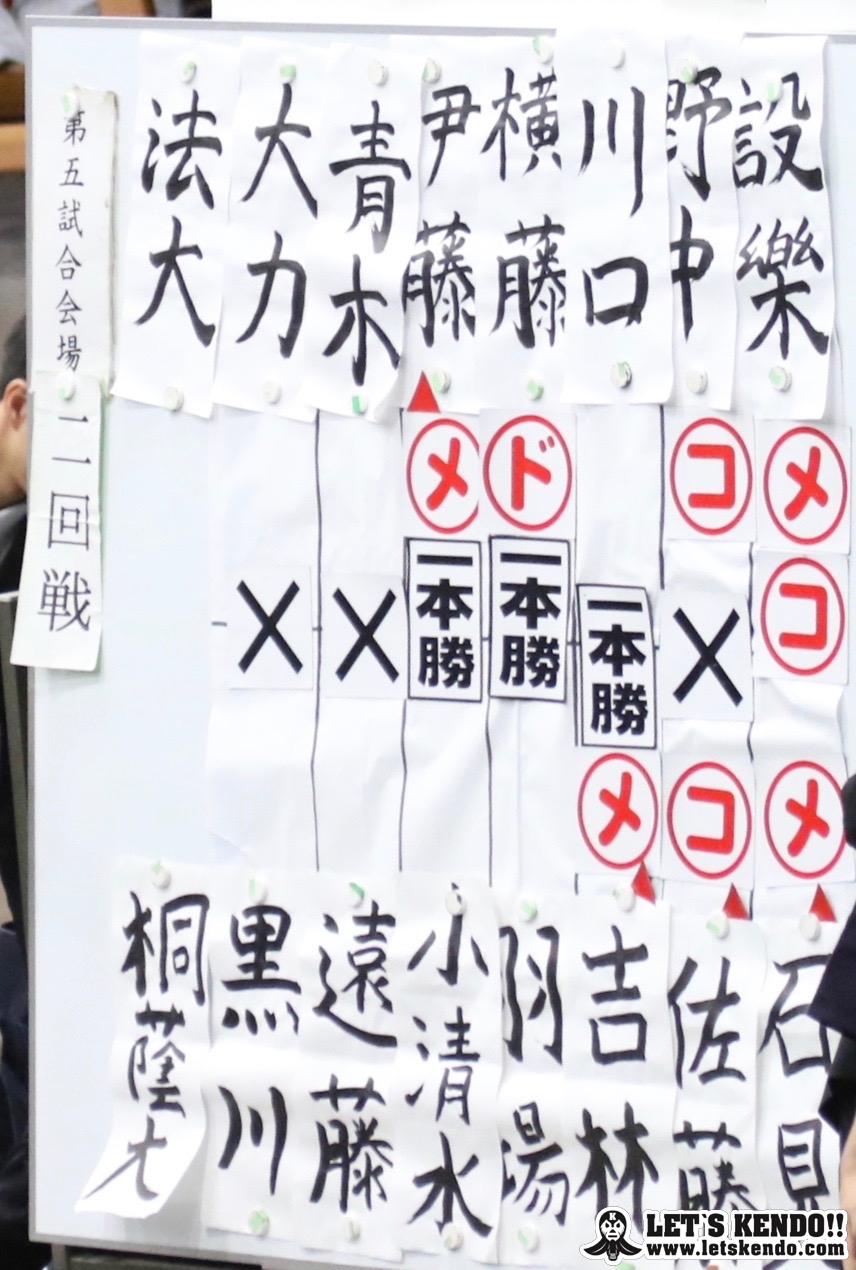 第五試合会場
二回戦
設樂
野中
川口
横藤
尹藤
青木
大力
法大
メ
コ
コ
ド
メ
×
一本勝
一本勝
一本勝
×
×
メ
コ
メ
石見
佐藤
吉林
羽場
小清水
遠藤
黒川
桐蔭大
LET'S KENDO!!
www.letskendo.com